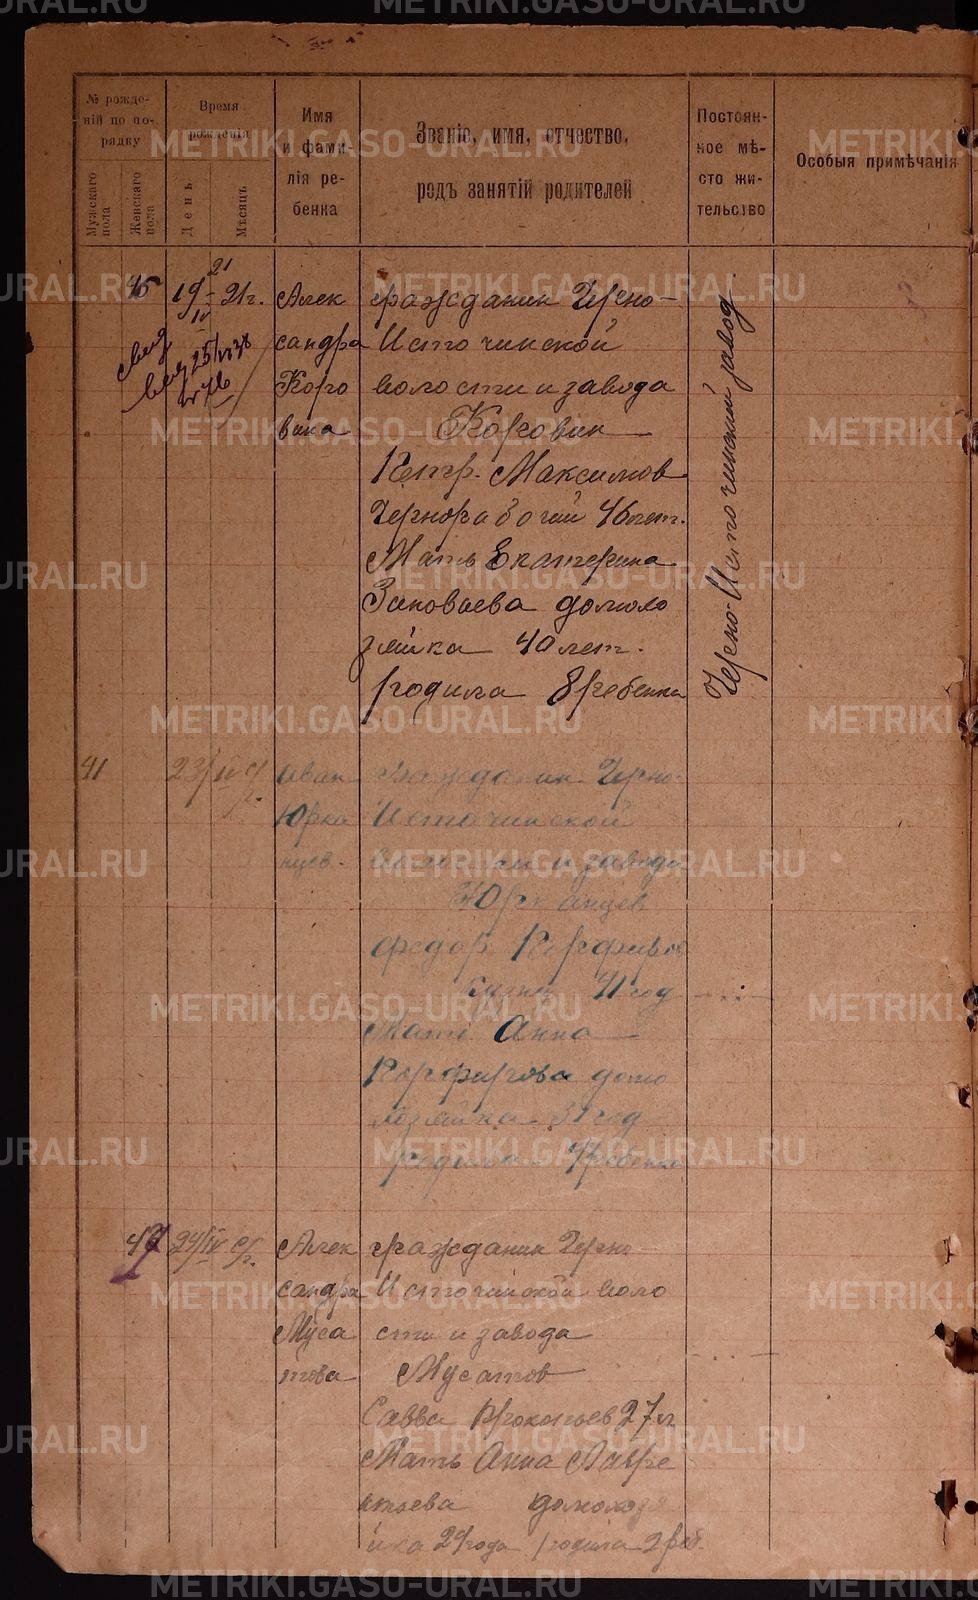 METRIKI.GASO-URAL.RU
№ рожде-
ній по по-
рядку
Мужскаго
пола
Женскаго
пола
Время
рожденія
День
Мѣсяцъ
Имя
и фами-
лія ре-
бенка
Званіе, имя, отчество,
родъ занятій родителей
Постоян-
ное мѣ-
сто жи-
тельство
Особыя примѣчанія
46
21
19 IV 21г.
Алек
сандра
Коро
вина
гражданин Черно-
Источинской
волости и завода
Коровин
Петр. Максимов
Чернорабочий 46 лет.
Мать Екатерина
Зиновьева домохо
зяйка 40 лет.
родила 8 ребенка
Черно-Источинский завод
25/VI 38
№ 76
41
23/IV
Иван
Юрка
нцев.
Гражданин Черно-
Источинской
волости и завода
Юрканцев
Федор Порфирьев
Кузнец 41 год
Мать Анна
Порфирова домо
хозяйка 31 год
родила 4 ребенка
47
24/IV с/г.
Алек
сандра
Муса
това
гражданин Черно
Источинской воло
сти и завода
Мусатов
Савва Прокопьев 27 л
Мать Анна Лавре
нтьева домохозя
йка 24 года родила 2 реб.